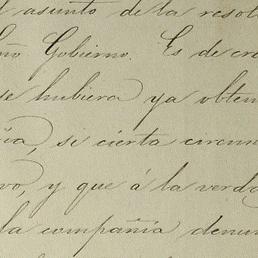 l asunto de la resol
ño Gobierno. Es de cre
se hubiera ya obten
ia, si cierta circuns
vo, y que á la verda
la compañia denun